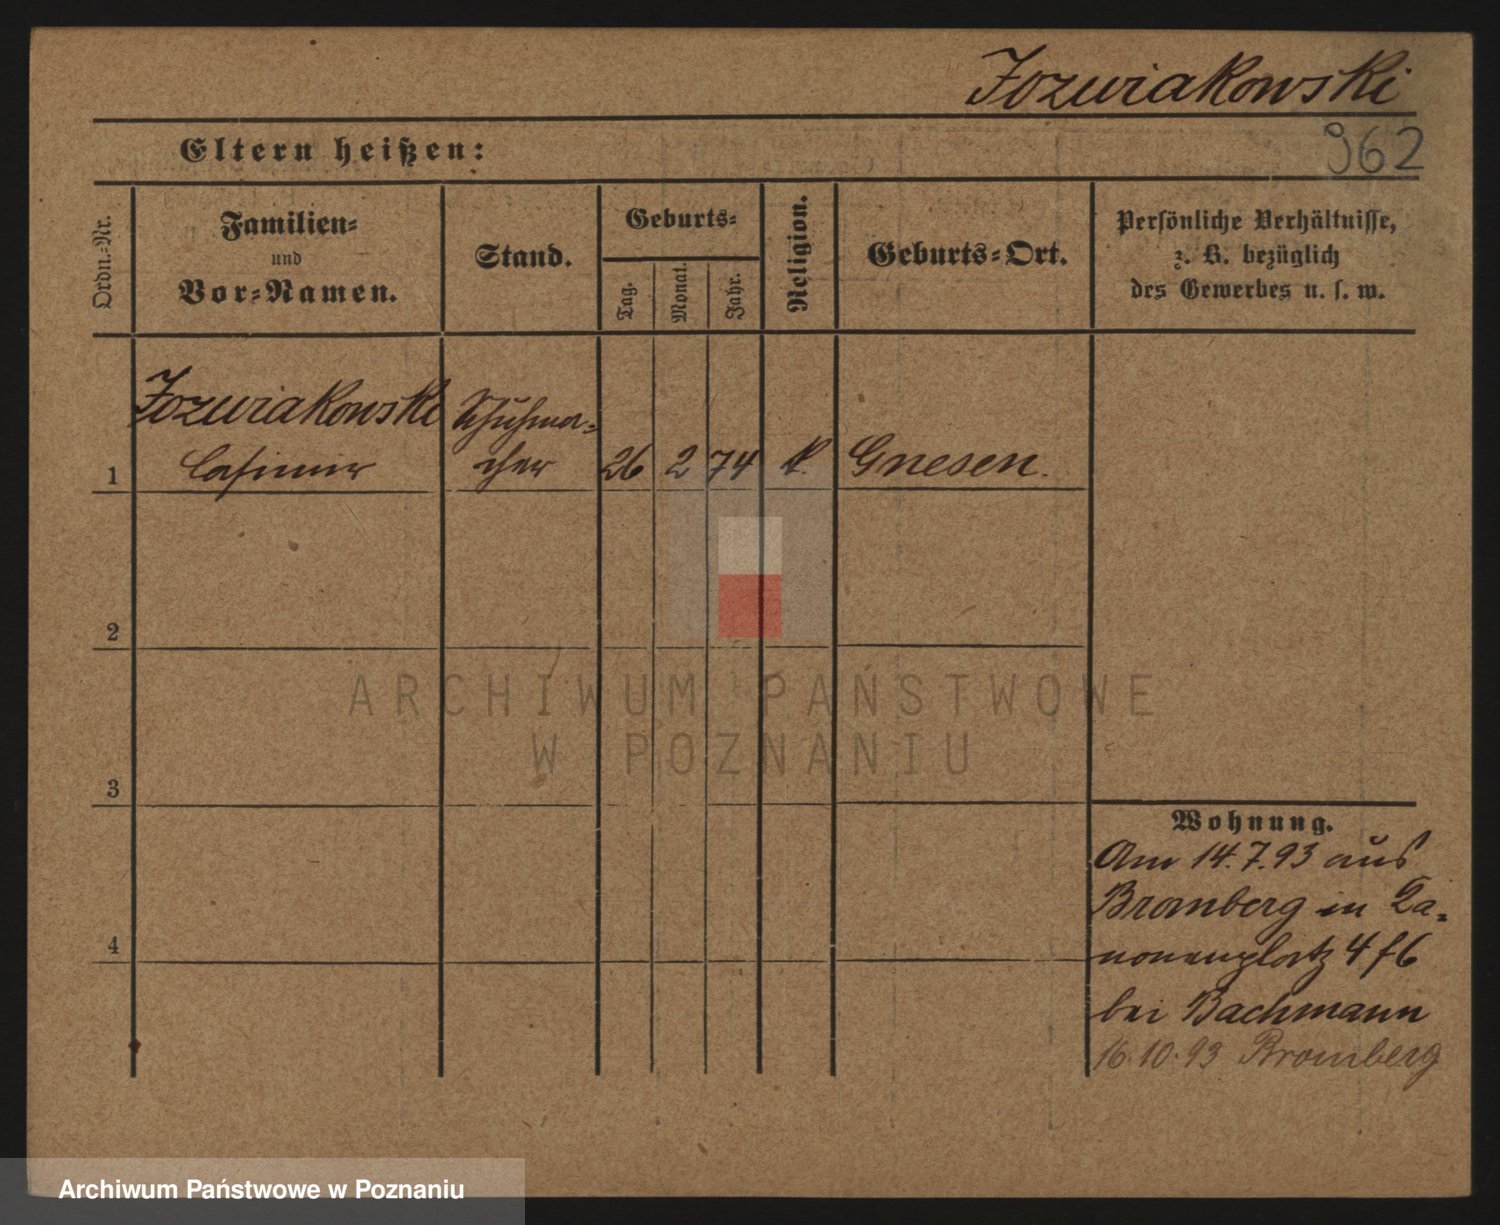 Jozwiakowski
Eltern heißen:
962
Ordn.-Nr.
Familien-
und
Vor-Namen.
Stand.
Geburts-
Tag.
Monat.
Jahr.
Religion.
Geburts-Ort.
Persönliche Verhältnisse,
z. B. bezüglich
des Gewerbes u. s. w.
Jozwiakowski Schuhma-
1 Casimir cher 26 2 74 k. Gnesen.
2
3
4
ARCHIWUM PAŃSTWOWE
W POZNANIU
Wohnung.
Am 14.7.93 aus
Bromberg in Ka-
nonenplatz 4
bei Bachmann
16.10.93 Bromberg
Archiwum Państwowe w Poznaniu